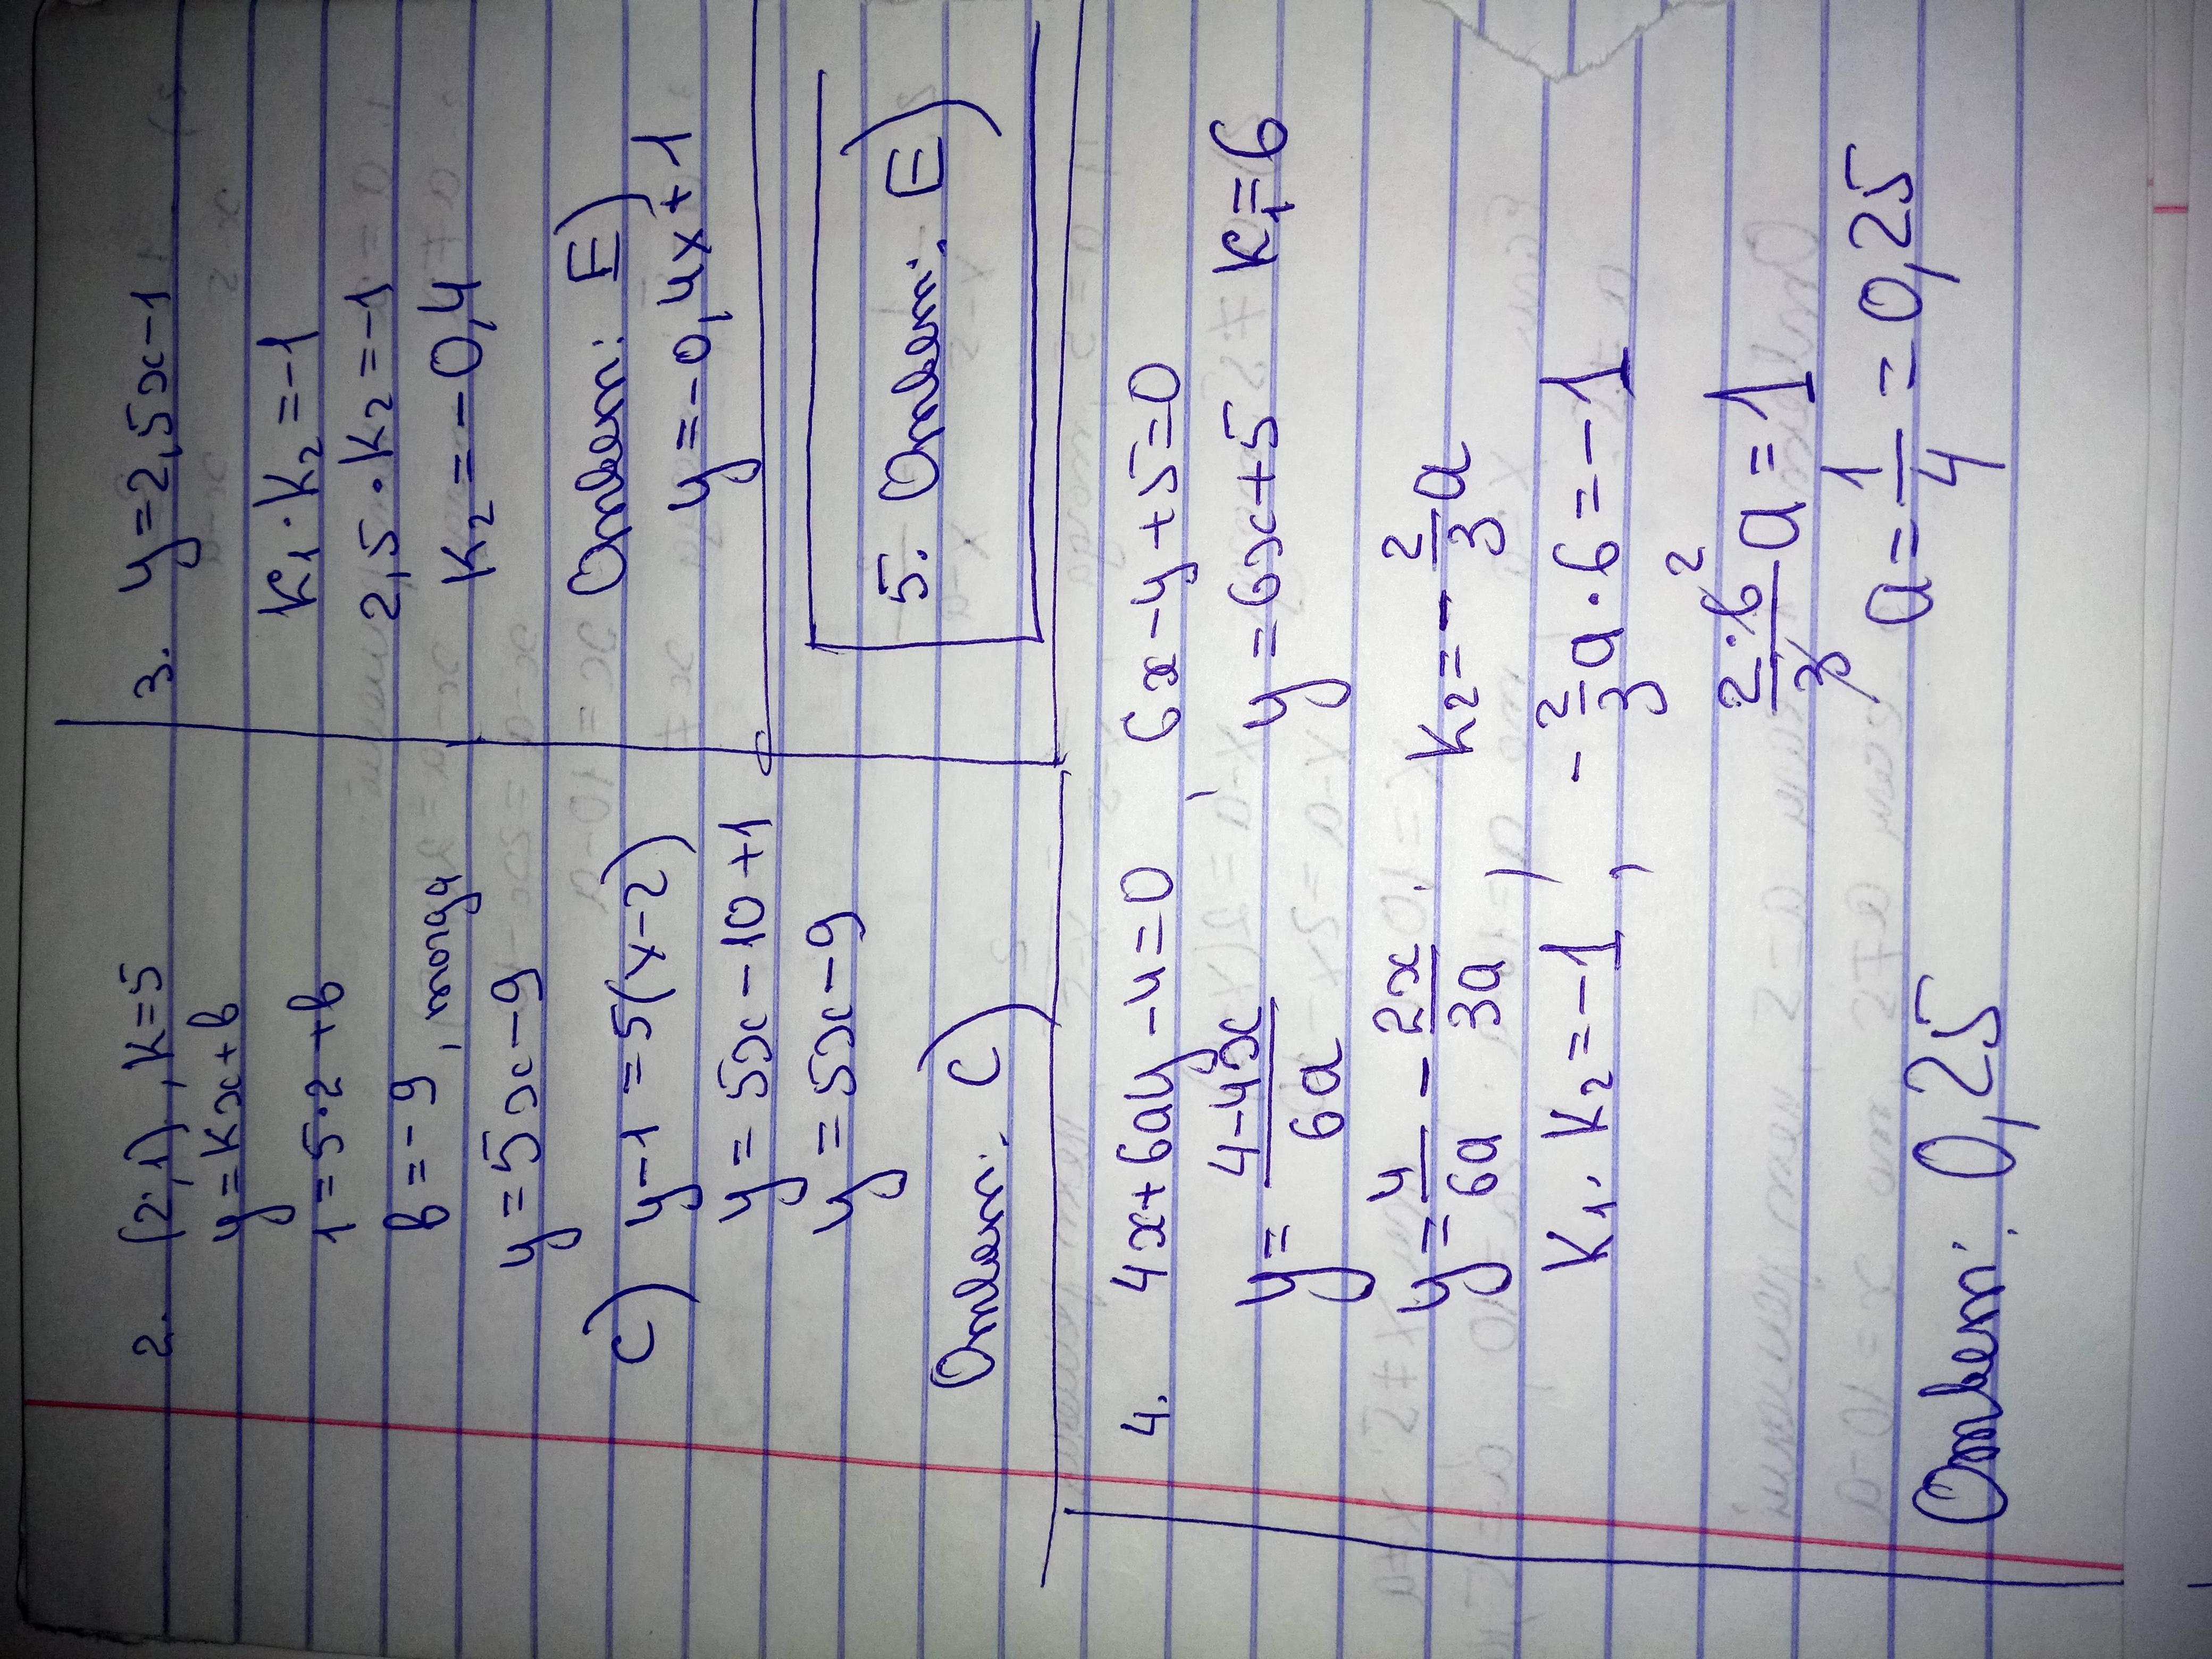 2. (2;1), K=5
y=Kx+b
1=5·2+b
b=-9, тогда
y=5x-9
C) y-1=5(x-2)
y=5x-10+1
y=5x-9
Ответ: C)
3. y=2,5x-1
K1·K2=-1
2,5·K2=-1
K2=-0,4
Ответ: E)
y=-0,4x+1
5. Ответ: E)
4. 4x+6ay-4=0, 6x-y+5=0
y=\frac{4-4x}{6a} y=6x+5 K1=6
y=\frac{4}{6a}-\frac{2x}{3a}; K2=-\frac{2}{3}a
K1·K2=-1, -\frac{2}{3}a·6=-1
\frac{2·6^2}{3}a=1
a=\frac{1}{4}=0,25
Ответ: 0,25